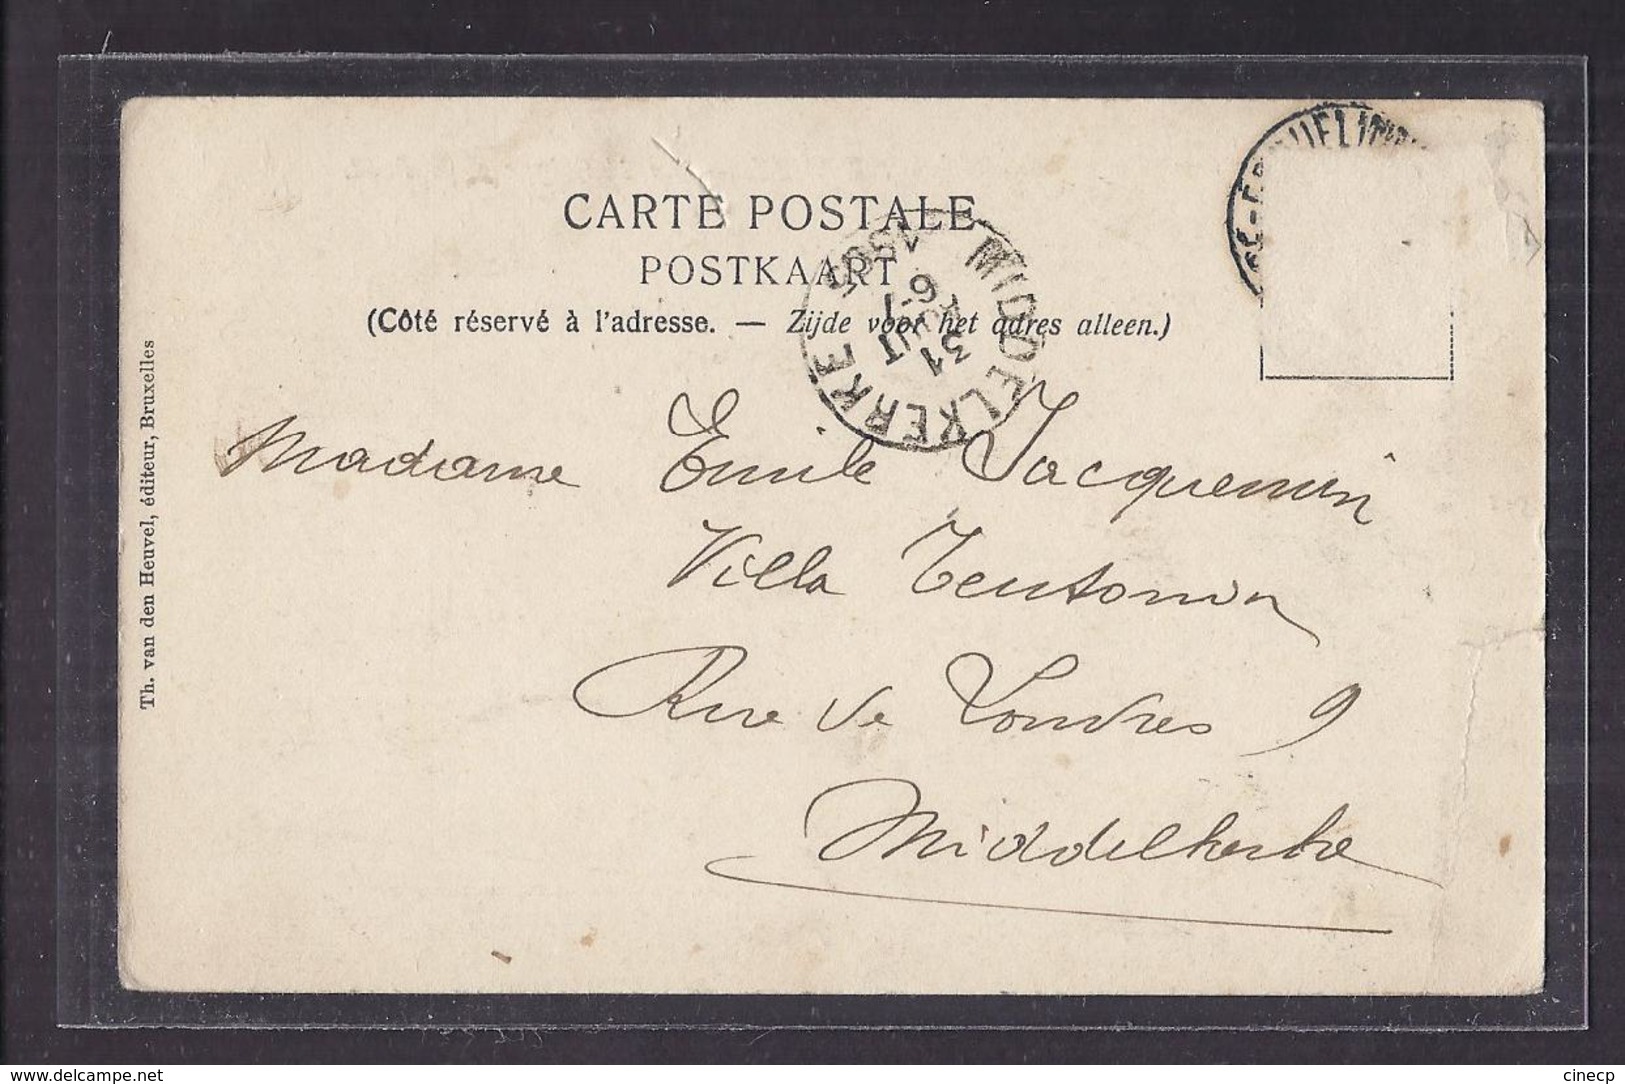 CARTE POSTALE
POSTKAART
(Côté réservé à l'adresse. — Zijde voor het adres alleen.)
MIDDELKERKE
31
6-7
Madame Emile Jacquemin
Villa Teutonia
Rue de Londres 9
Middelkerke
Th. van den Heuvel, éditeur, Bruxelles
www.delcampe.net
cinecp